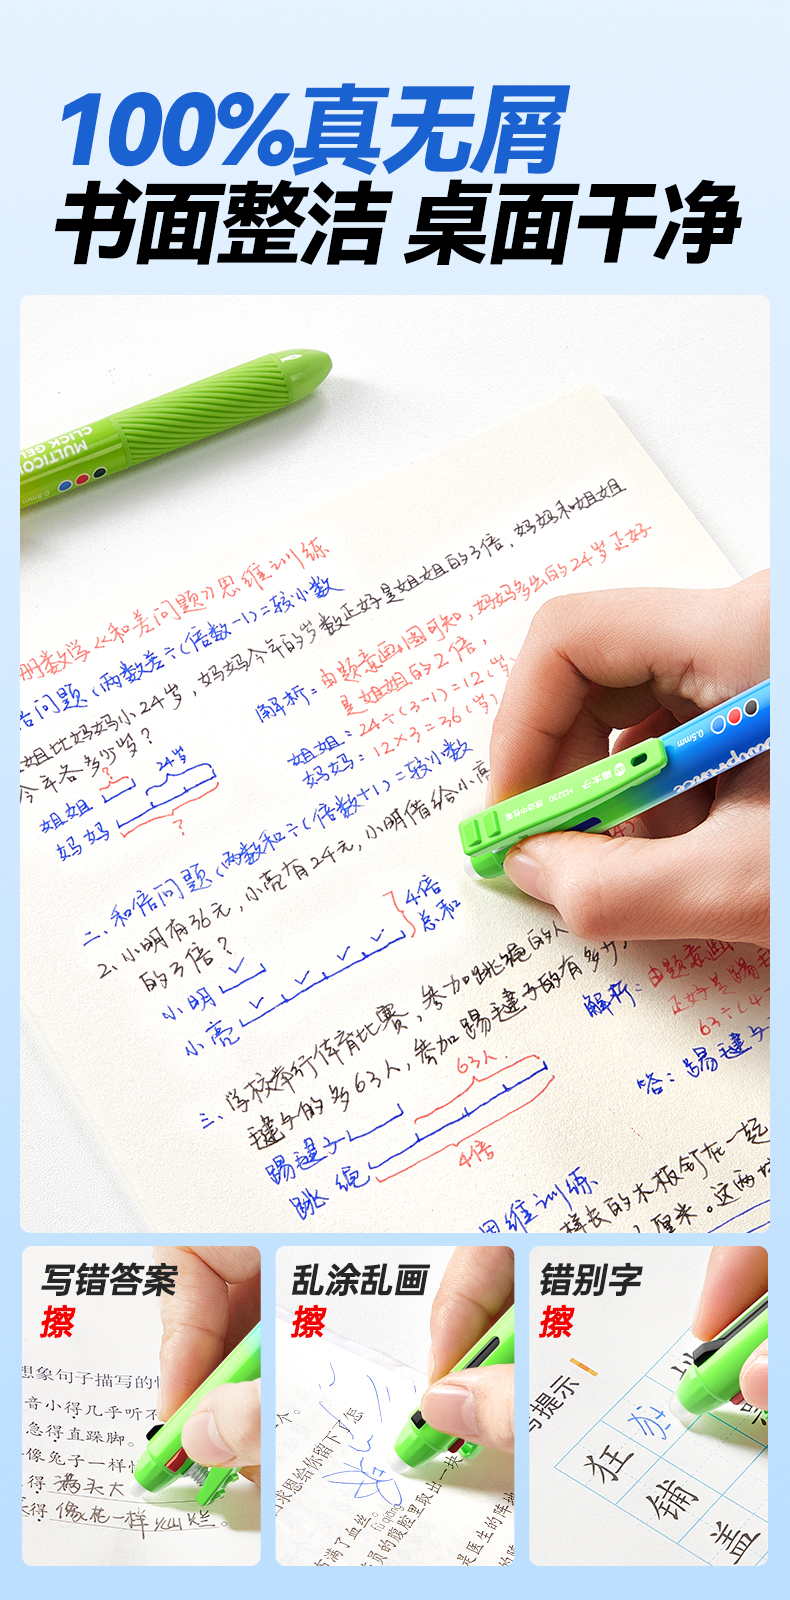 100%真无屑
书面整洁 桌面干净
MULTICO
CLICK GEL
0.5mm
册数学《和差问题》思维训练
倍问题(两数差÷(倍数-1)=较小数
姐比妈妈小24岁,妈妈今年的岁数正好是姐姐的3倍,妈妈和姐姐
今年各多少岁?
解析:由题意画图可知,妈妈多出的24岁正好
是姐姐的2倍,
姐姐:24÷(3-1)=12(岁)
妈妈:12×3=36(岁)
?
24岁
姐姐
妈妈
?
二、和倍问题(两数和÷(倍数+1)=较小数
2、小明有36元,小亮有24元,小明借给小亮
的3倍?
小明
小亮
4倍
总和
三、学校举行体育比赛,参加跳绳的人
毽子的多63人,参加踢毽子的有多少
解析:由题意画
正好是踢
63÷(4
答:踢毽子
63人
踢毽子
跳绳
4倍
思维训练
样长的木板钉在一起
厘米。这两块
0.5mm
H3230
写错答案
擦
想象句子描写的
音小得几乎听不
急得直跺脚。
像兔子一样
得 满头大
得 像花一样 火山 烂。
乱涂乱画
擦
个。
求恩给你留下了怎
满了血丝。
fù qiāng
员的腹腔里取出一块
是医生的阵
的
错别字
擦
写提示
狂
铺
盖